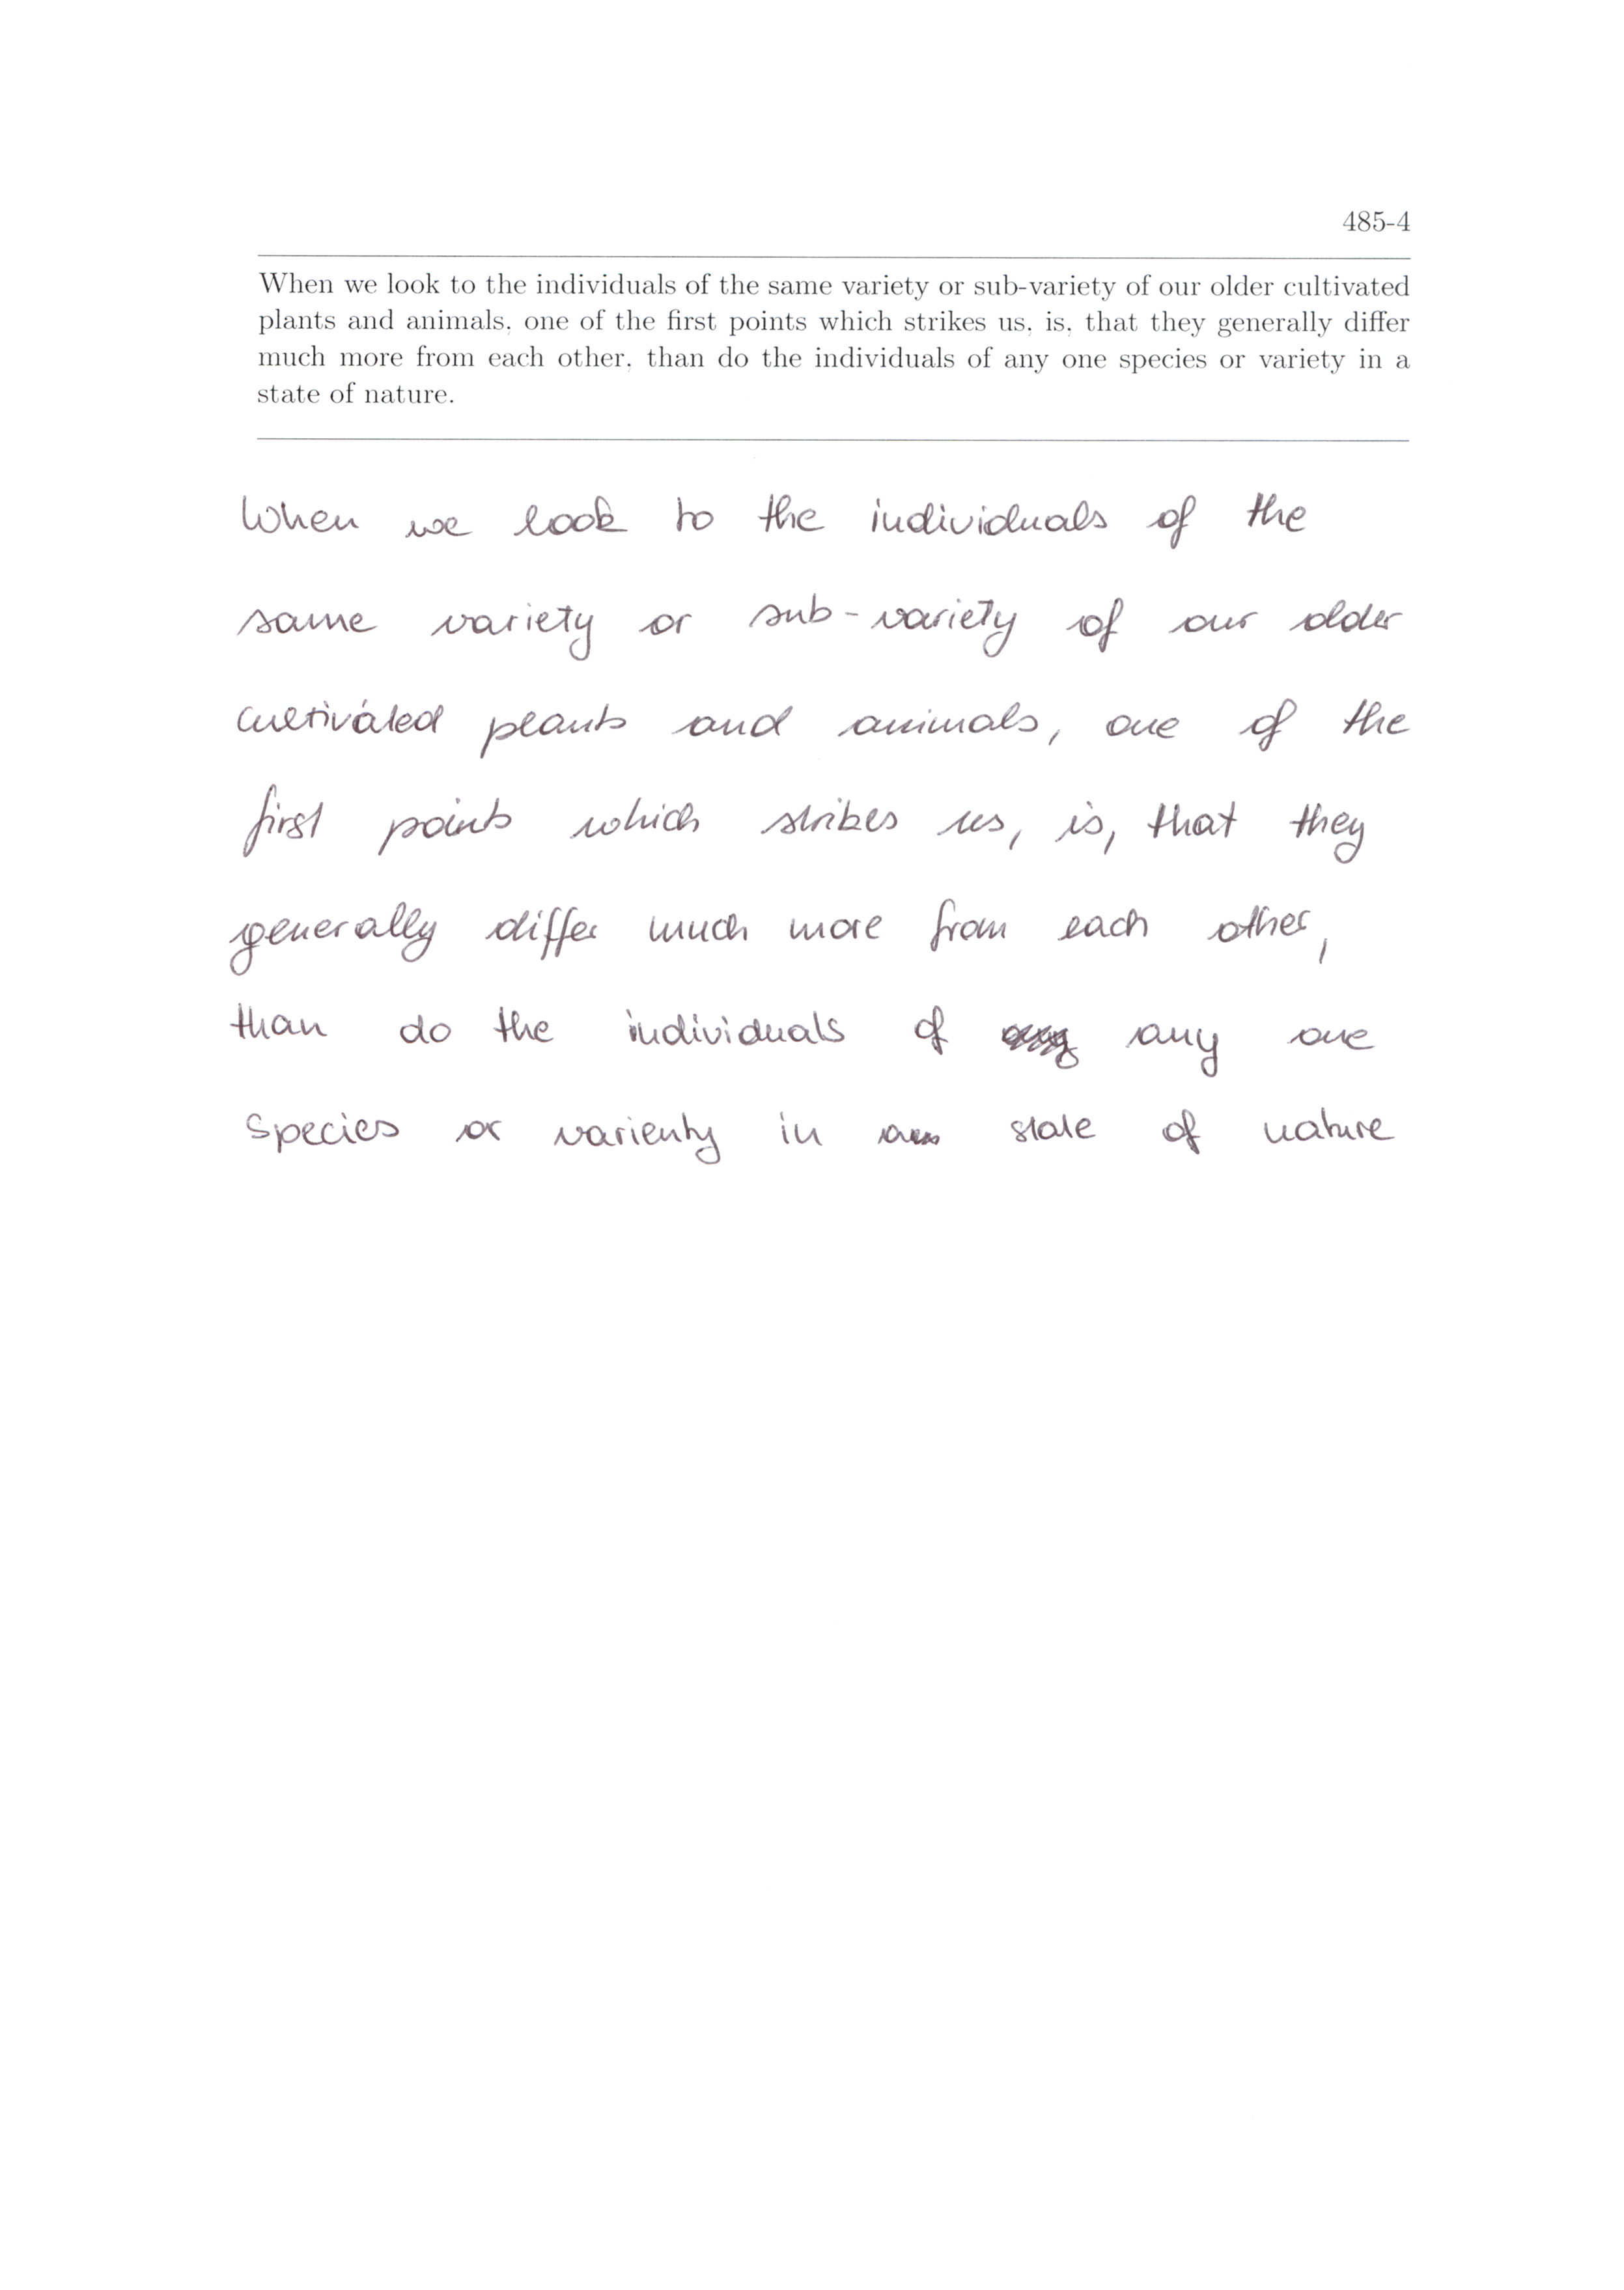 485-4
When we look to the individuals of the same variety or sub-variety of our older cultivated
plants and animals, one of the first points which strikes us, is, that they generally differ
much more from each other, than do the individuals of any one species or variety in a
state of nature.
When we look to the individuals of the
same variety or sub-variety of our older
cultivated plants and animals, one of the
first points which strikes us, is, that they
generally differ much more from each other,
than do the individuals of any one
species or varienty in a state of nature